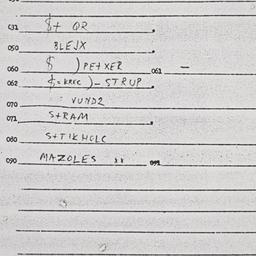 031 $+ OR
050 BLEJX
060 $ ) PETXER 061 —
062 $=KREC )-STRUP
070 VUND2
071 S+RAM
080 S+TIKHOLC
090 MAZOLES 091